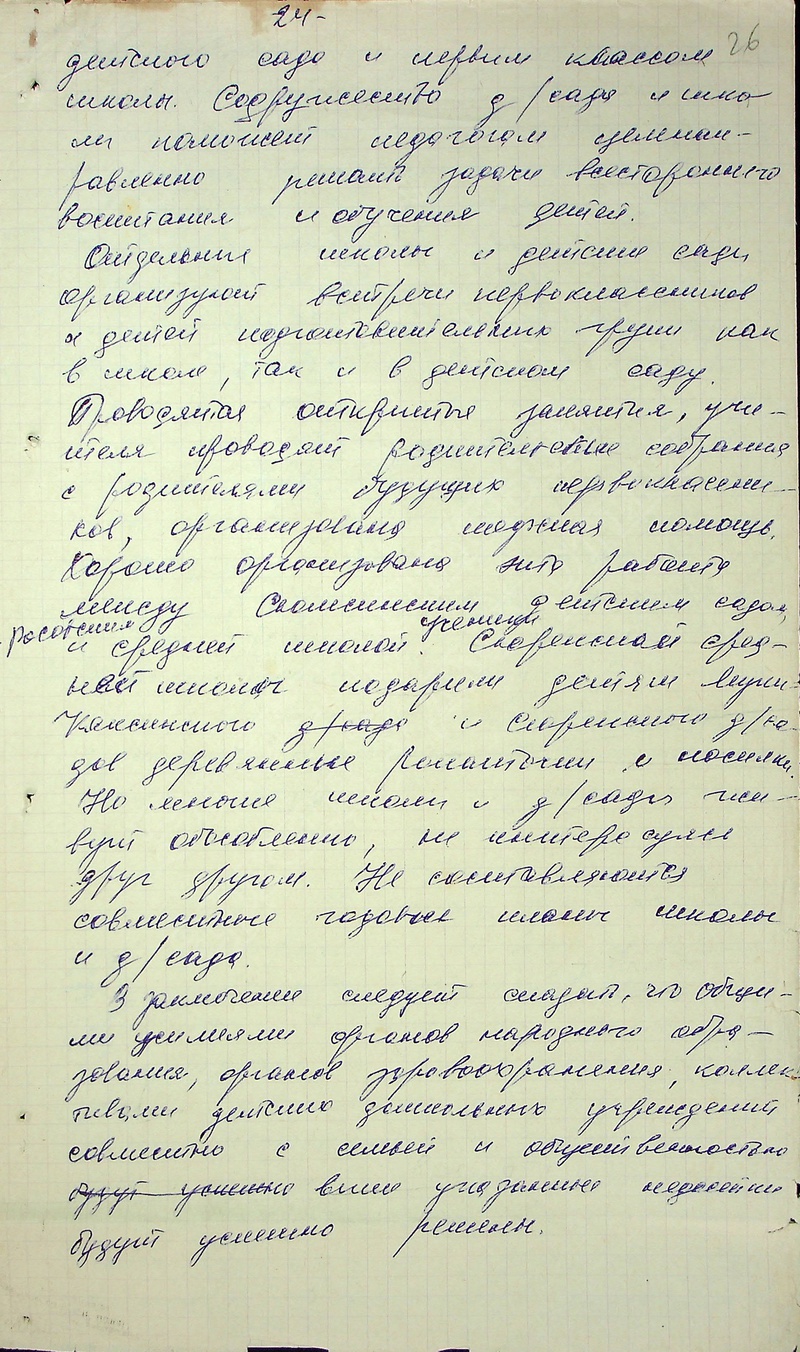 24-
26
детского сада и первым классом
школы. Содружество д/сада и шко
лы поможет педагогам целенап-
равленно решать задачи всестороннего
воспитания и обучения детей.
Отдельные школы и детские сады
организуют встречи первоклассников
и детей подготовительных групп как
в школе, так и в детском саду.
Проводятся открытые занятия, учи-
теля проводят родительские собрания
с родителями будущих первоклассни-
ков, организована шефская помощь.
Хорошо организована эта работа
между детским садом,
и средней школой. ученики средн-
ней школы подарили детям
д/сада и д/са
дов деревянные и носилки.
Но многие школы и д/сады жи-
вут обособленно, не интересуясь
друг другом. Не составляются
совместные годовые планы школы
и д/сада.
В заключении следует сказать, что общи-
ми усилиями органов народного обра-
зования, органов здравоохранения, коллек
тивами детских дошкольных учреждений
совместно с семьей и общественностью
будут успешно выше указанные недостатки
будут успешно решены.